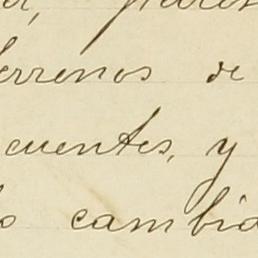 errenos de
cuentes, y
o cambia